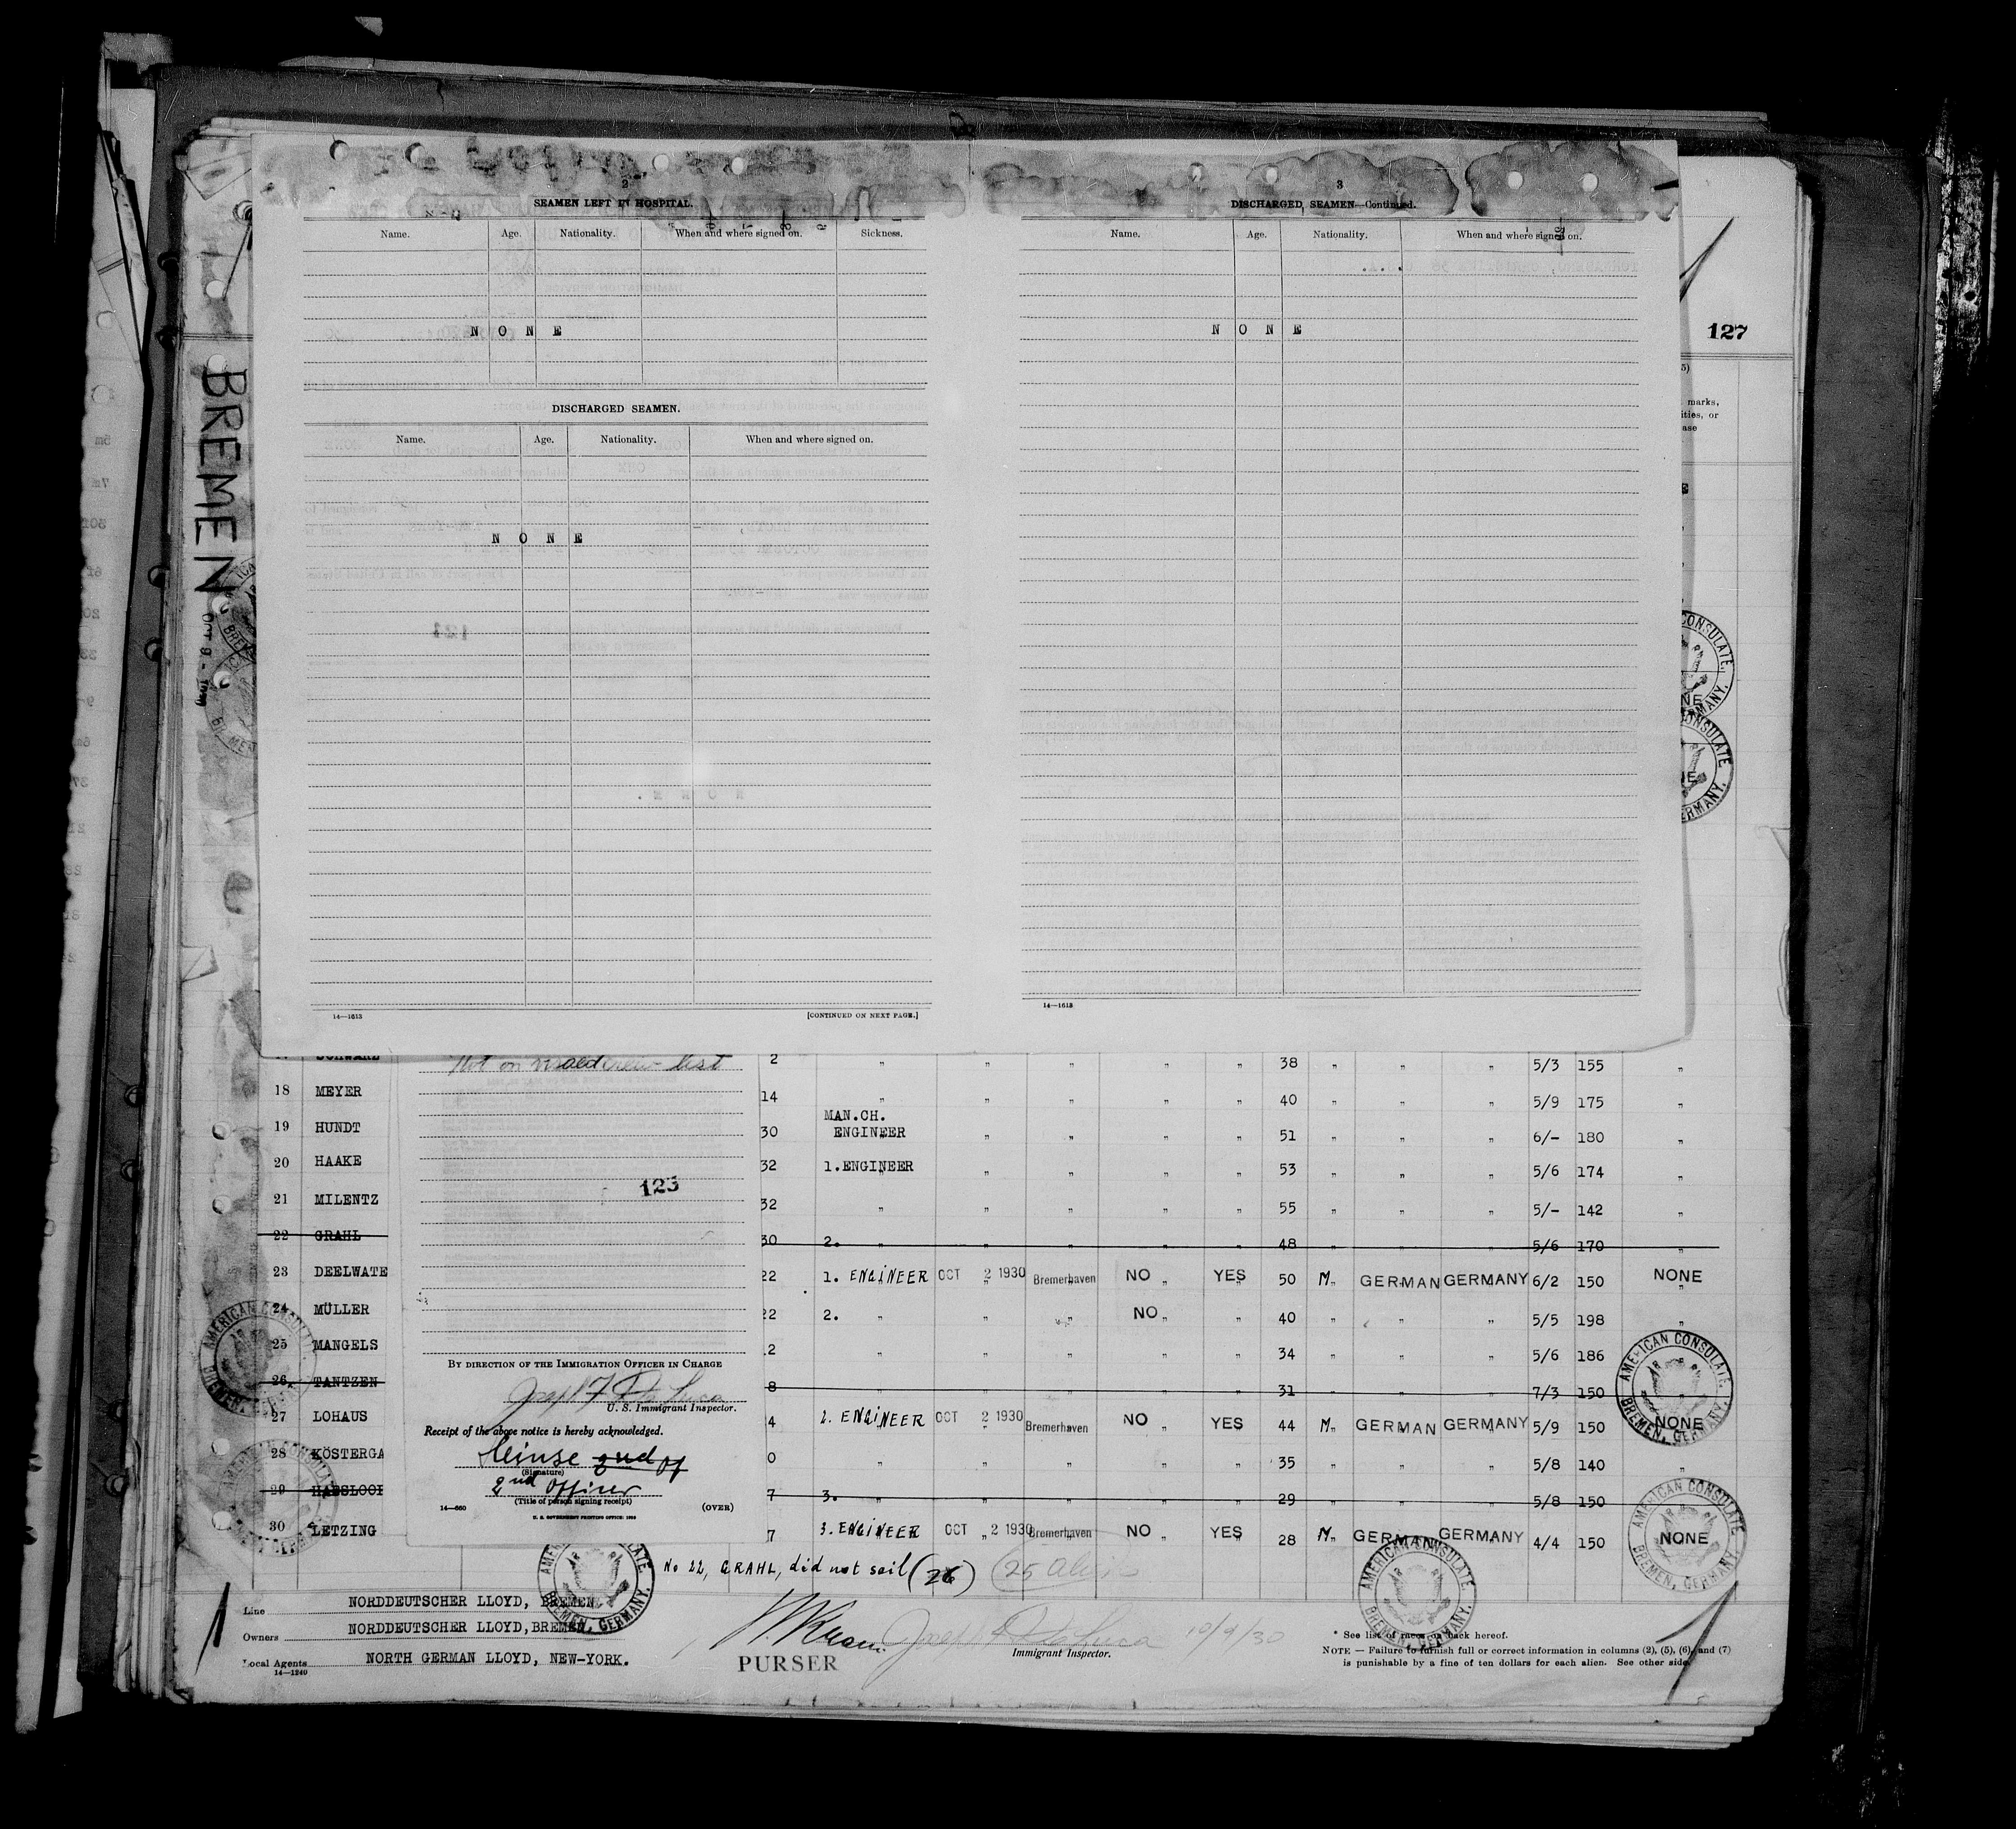 2
SEAMEN LEFT IN HOSPITAL.
Name. Age. Nationality. When and where signed on. Sickness.
N O N E
DISCHARGED SEAMEN.
Name. Age. Nationality. When and where signed on.
N O N E
14—1613 [CONTINUED ON NEXT PAGE.]
3
DISCHARGED SEAMEN—Continued.
Name. Age. Nationality. When and where signed on.
N O N E
14—1613
127
marks,
ities, or
ase
BREMEN
OCT 9 -
CONSULATE,
GERMANY.
CONSULATE
GERMANY.
SCHWARZ 2 " " " " " 38 " " " 5/3 155 "
18 MEYER 14 " " " " " 40 " " " 5/9 175 "
19 HUNDT 30 MAN.CH. ENGINEER " " " " 51 " " " 6/- 180 "
20 HAAKE 32 1.ENGINEER " " " " 53 " " " 5/6 174 "
21 MILENTZ 32 " " " " " 55 " " " 5/- 142 "
22 GRAHL 30 2. " " " " " 48 " " " 5/6 170 "
23 DEELWATE 22 1. ENGINEER OCT 2 1930 Bremerhaven NO YES 50 M GERMAN GERMANY 6/2 150 NONE
24 MÜLLER 22 2. " " " NO " " 40 " " " 5/5 198 "
25 MANGELS 2 " " " " " 34 " " " 5/6 186
26 TANTZEN 8 " " " " " 31 " " " 7/3 150 "
27 LOHAUS 4 2. ENGINEER OCT 2 1930 Bremerhaven NO YES 44 M GERMAN GERMANY 5/9 150 NONE
28 KÖSTERGA 0 " " " " " 35 " " " 5/8 140 "
29 7 3. " " " " " 29 " " " 5/8 150
30 LETZING 7 3. ENGINEER OCT 2 1930 Bremerhaven NO YES 28 M GERMAN GERMANY 4/4 150 NONE
Not on visaed crew list
123
BY DIRECTION OF THE IMMIGRATION OFFICER IN CHARGE
Joseph F. De Luca
U. S. Immigrant Inspector.
Receipt of the above notice is hereby acknowledged.
2nd Of
(Signature)
2nd Officer
(Title of person signing receipt)
14—660 (OVER)
U. S. GOVERNMENT PRINTING OFFICE: 1929
AMERICAN CONSULATE
BREMEN, GERMANY.
AMERICAN CONSULATE
BREMEN, GERMANY.
AMERICAN CONSULATE
BREMEN, GERMANY.
AMERICAN CONSULATE,
BREMEN, GERMANY.
AMERICAN CONSULATE
BREMEN, GERMANY.
AMERICAN CONSULATE
BREMEN, GERMANY.
No 22, GRAHL, did not sail (26) (25 aliens
Line NORDDEUTSCHER LLOYD, BREMEN.
Owners NORDDEUTSCHER LLOYD, BREMEN.
Local Agents NORTH GERMAN LLOYD, NEW-YORK.
14—1240
PURSER
Joseph F De Luca 10/9/30
Immigrant Inspector.
* See list of races on back hereof.
NOTE — Failure to furnish full or correct information in columns (2), (5), (6), and (7)
is punishable by a fine of ten dollars for each alien. See other side.